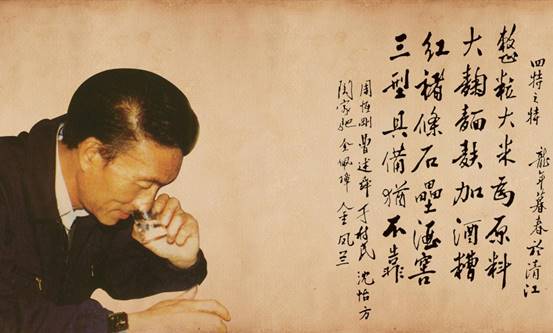 四特之特 龍年暮春於清江
整粒大米为原料
大麴麵麩加酒糟
紅褚條石壘酒窖
三型具備猶不靠
周恒剛 曹述舜 于树民 沈怡方
陶家馳 金佩璋 金凤兰